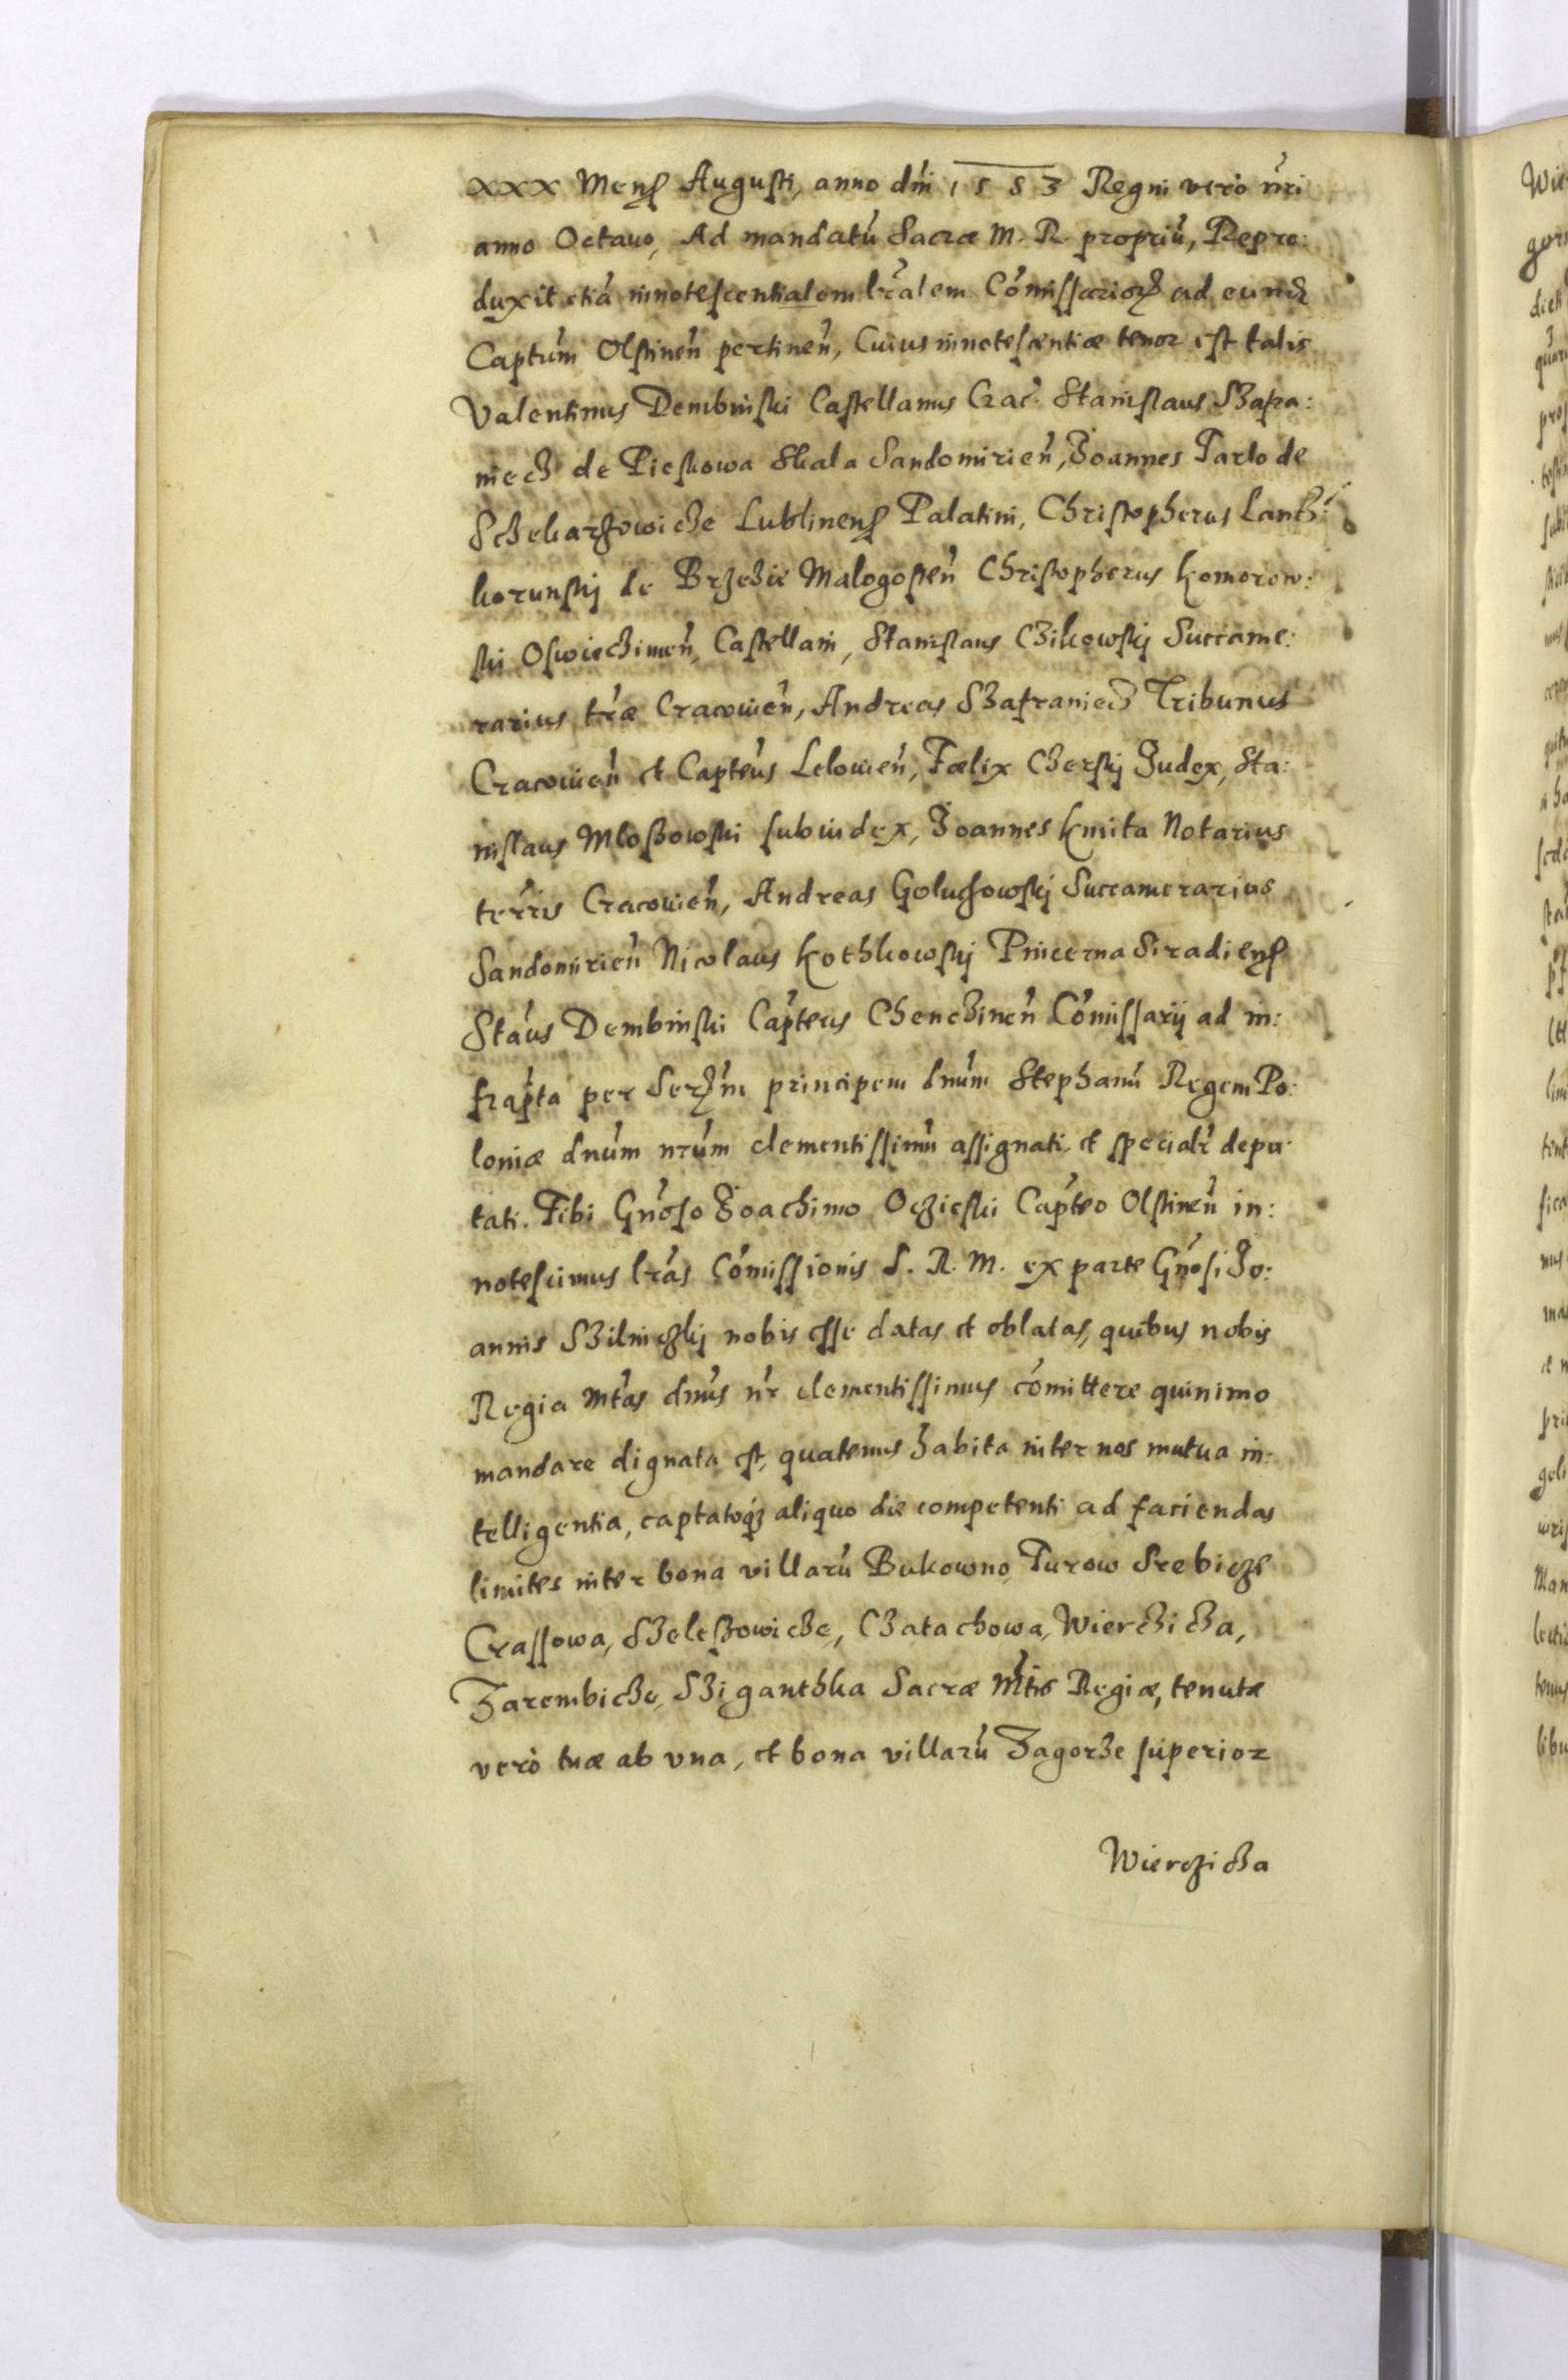 xxx Mens Augusti, anno dni 1583 Regni verò nri
anno Octauo, Ad mandatũ Sacræ M. R. propriũ, Repro:
duxit etiã innotescentialem lralem Comissarior̃ ad eund
Captum Olstineñ pertineñ, Cuius innotescentiæ tenor est talis
Valentinus Dembinski Castellanus Crac. Stanislaus Szafra:
niecz de Pieskowa Skala Sandomirieñ, Joannes Tarlo de
Sczekarzowicze Lublinens Palatini, Christopherus Lancz:
korunskj de Brzezie Malogosteñ Christopherus Komorow:
ski Oswieczimeñ, Castellani, Stanislaus Czikowskj Succame:
rarius træ Cracouieñ, Andreas Szafraniecz Tribunus
Cracouieñ et Capteus Lelouieñ, Fœlix Czerskj Judex, Sta:
nislaus Mloszowski subiudex, Joannes Kmita Notarius
terris Cracouieñ, Andreas Goluchowskj Succamerarius
Sandomirieñ Nicolaus Kothkowskj Pincerna Siradiens
Staus Dembinski Capteus Chenczineñ Comissarij ad in:
frapta per Serm principem dnum Stephanũ Regem Po:
loniæ dnum nrum clementissimũ assignati et specialr depu
tati. Tibi Gnoso Joachimo Oczieski Capteo Olstineñ in:
notescimus lras Comissionis S. R. M. ex parte Gnosi Jo:
annis Szilniczkj nobis esse datas et oblatas, quibus nobis
Regia Mtas dnus nr clementissimus comittere quinimo
mandare dignata est, quatenus habita inter nos mutua in:
telligentia, captatoq aliquo die competenti ad faciendas
limites inter bona villarũ Bukowno, Turow Srebicze
Crassowa, Szeleszowicze, Czatachowa, Wierczicza,
Zarembicze, Sziganthka Sacræ Mtis Regiæ, tenutæ
verò tuæ ab vna, et bona villarũ Zagorze superior
Wierczicza